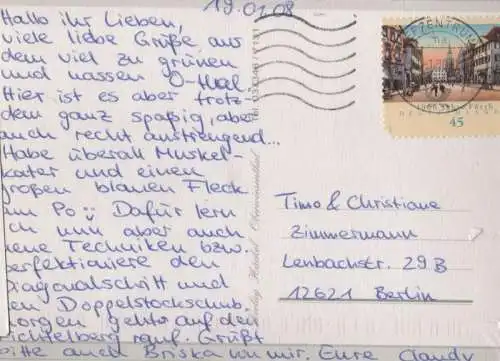 19.01.08
Hallo ihr Lieben,
viele liebe Grüße aus
dem viel zu grünen
und nassen O-thal
Hier ist es aber trotz-
dem ganz spaßig, aber
auch recht anstrengend...
Habe überall Muskel-
kater und einen
großen blauen Fleck
am Po Dafür lern
ich nun aber auch
neue Techniken bzw.
perfektioniere den
Diagonalschritt und
den Doppelstockschub.
Morgen gehts auf den
Fichtelberg rauf. Grüßt
bitte auch Briska von mir. Eure
Timo & Christiane
Zimmermann
Lenbachstr. 29B
12621 Berlin
1000 Jahre Fürth
45